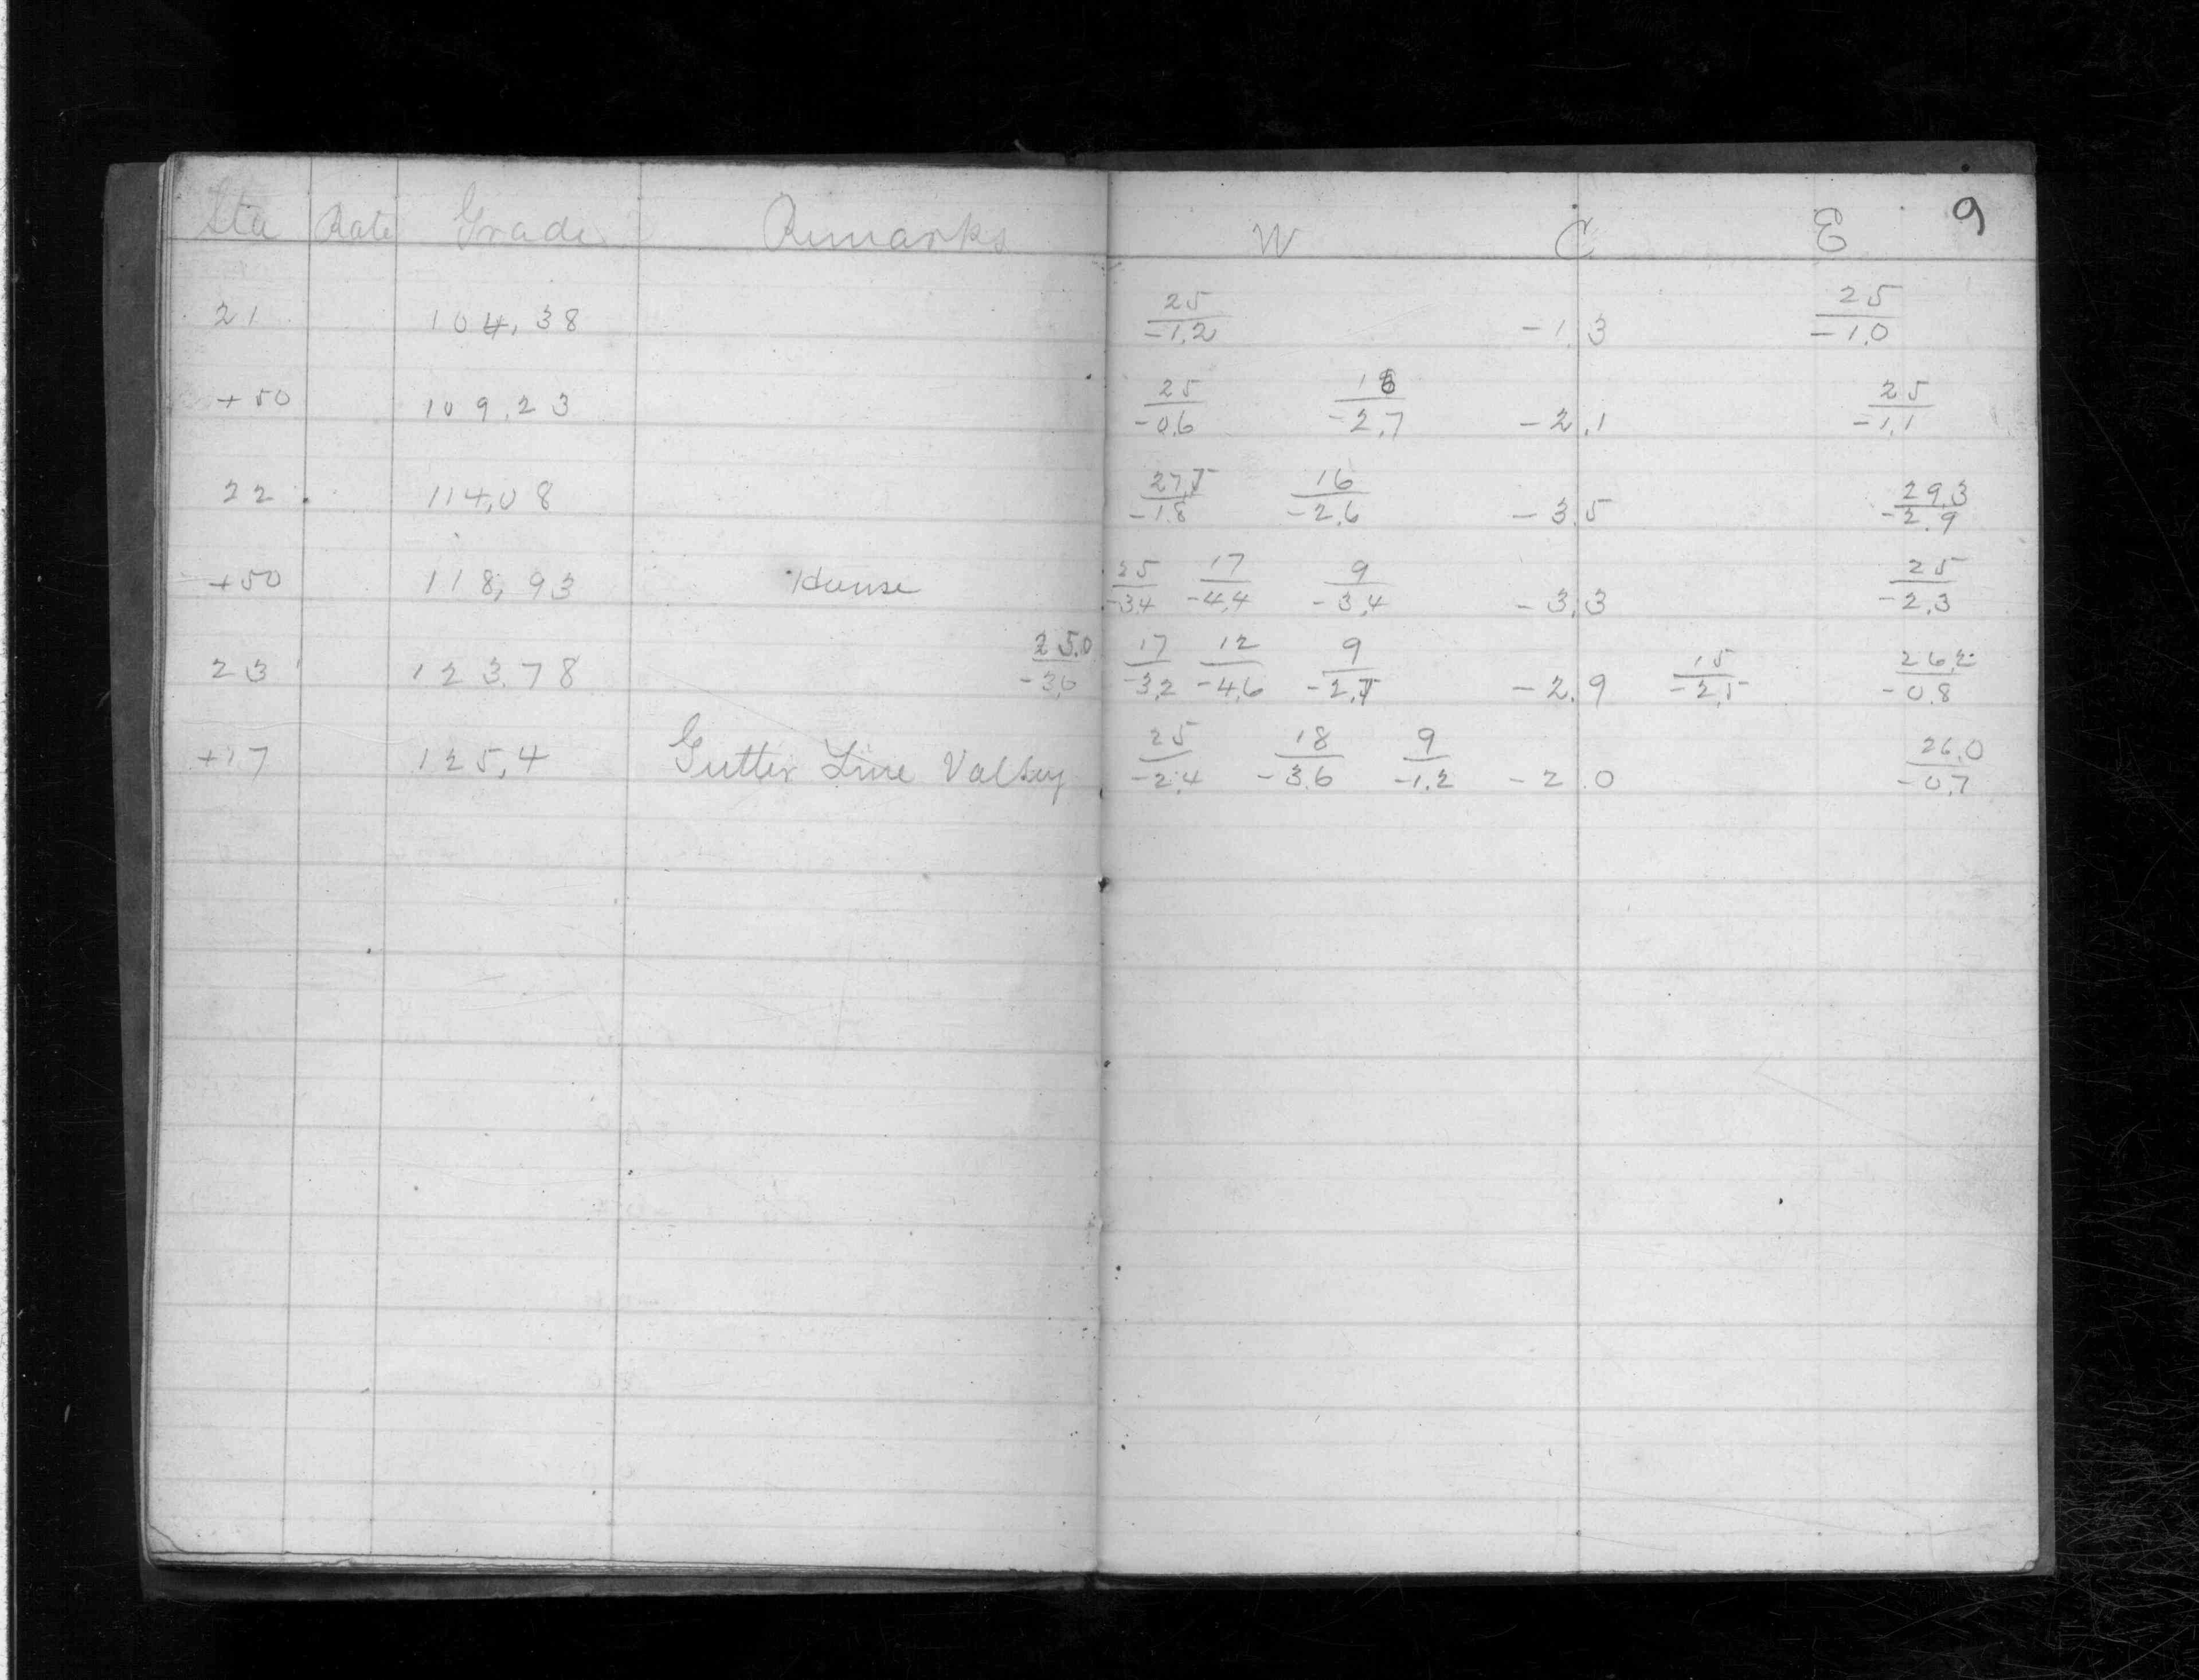 Sta Rate Grade Remarks W C E 9
21 104.38 25/-1.2 -1.3 25/-1.0
+50 109.23 25/-0.6 -2.7 -2.1 25/-1.1
22 114.08 -1.8 16/-2.6 -3.5 29.3/-2.9
+50 118.93 House 25/-3.4 17/-4.4 9/-3.4 -3.3 25/-2.3
23 123.78 25.0/-3.6 17/-3.2 12/-4.6 9/-2.7 -2.9 15/-2.5 26.2/-0.8
+17 125.4 Gutter Line Valley 25/-2.4 18/-3.6 9/-1.2 -2.0 26.0/-0.7